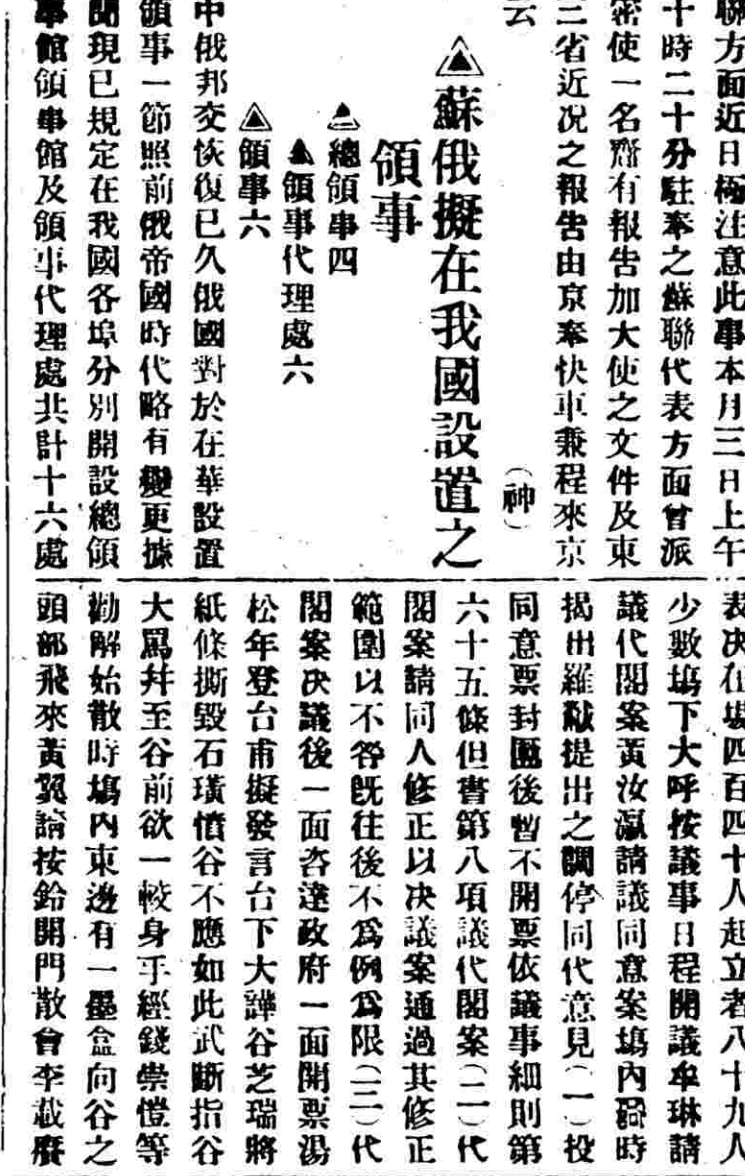 聯方面近日極注意此事本月三日上午
十時二十分駐奉之蘇聯代表方面曾派
密使一名齎有報告加大使之文件及東
三省近况之報告由京奉快車兼程來京
云
（神）
▲蘇俄擬在我國設置之
領事
▲總領事四
▲領事代理處六
▲領事六
中俄邦交恢復已久俄國對於在華設置
領事一節照前俄帝國時代略有變更據
聞現已規定在我國各埠分別開設總領
事館領事館及領事代理處共計十六處
表决在場四百四十人起立者八十九人
少數塲下大呼按議事日程開議牟琳請
議代閣案黃汝瀛請議同意案塲內 時
揭出羅黻提出之調停同代意見（一）投
同意票封匭後暫不開票依議事細則第
六十五條但書第八項議代閣案（二）代
閣案請同人修正以决議案通過其修正
範圍以不咎既往後不爲例爲限（三）代
閣案决議後一面咨達政府一面開票湯
松年登台甫擬發言台下大譁谷芝瑞將
紙條撕毀石璜憤谷不應如此武斷指谷
大罵幷至谷前欲一較身手經錢崇愷等
勸解始散時塲內東邊有一墨盒向谷之
頭部飛來黃翼請按鈴開門散會李載賡